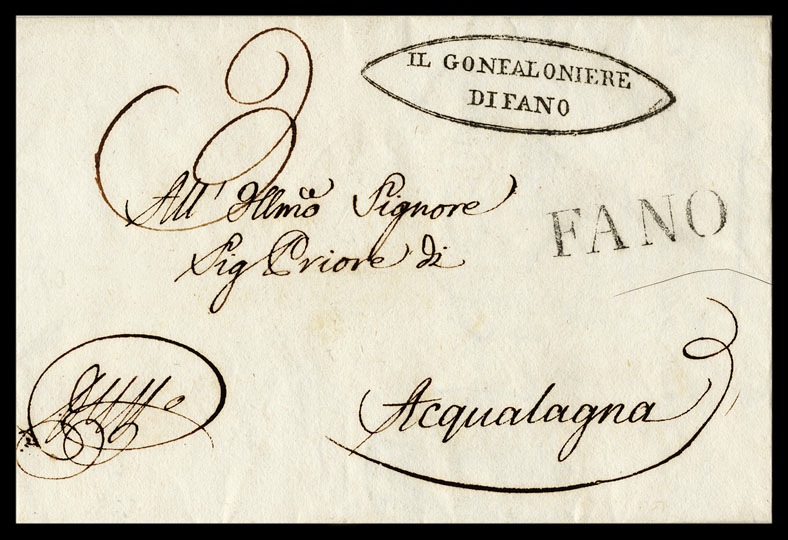 IL GONFALONIERE
DI FANO
FANO
All' Illmo Signore
Sig Priore di
Acqualagna